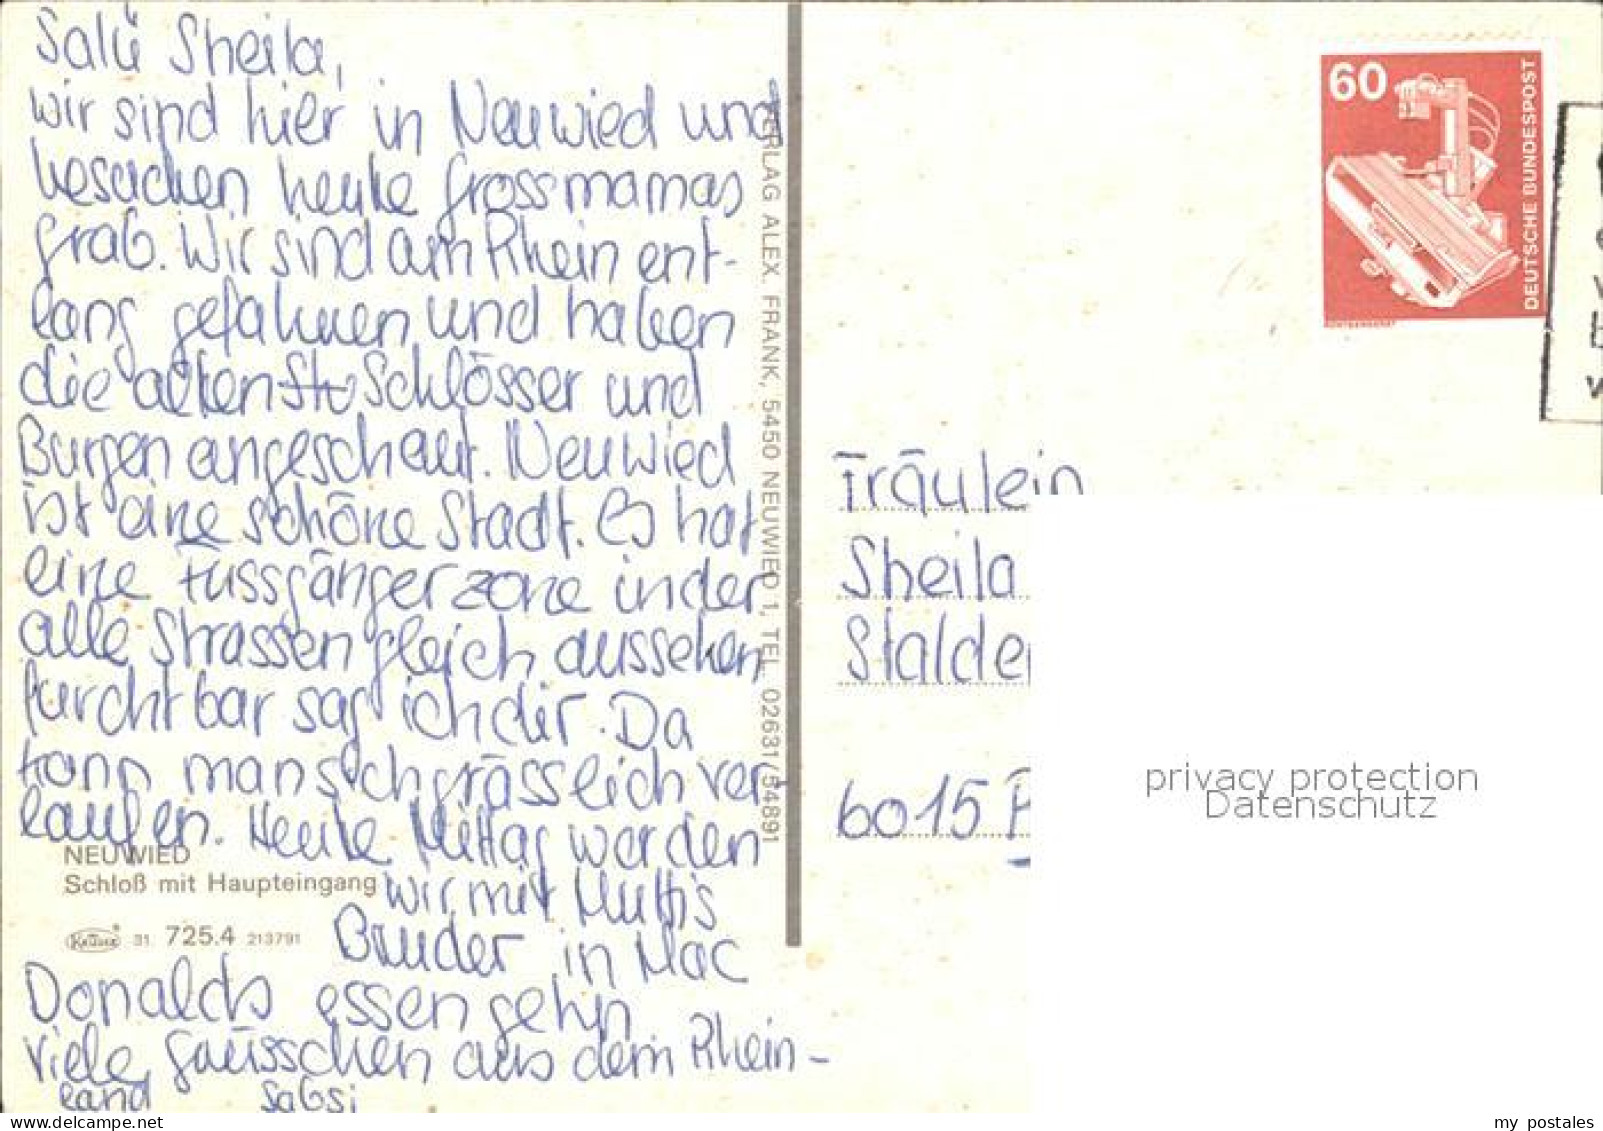 Salü Sheila,
wir sind hier in Neuwied und
besuchen heute Grossmamas
Grab. Wir sind am Rhein ent-
lang gefahren und haben
die alten Schlösser und
Burgen angeschaut. Neuwied
ist eine schöne Stadt. Es hat
eine Fussgängerzone in der
alle Strassen gleich aussehen
furchtbar sag ich dir. Da
kann man sich grässlich ver-
laufen. Heute Mittag werden
wir mit Muttis
Bruder in Mac
Donalds essen gehn
viele Gaüsschen aus dem Rhein-
land Gabsi
NEUWIED
Schloß mit Haupteingang
Krüger 31. 725.4 213791
VERLAG ALEX. FRANK, 5450 NEUWIED 1, TEL. 02631/54891
60
DEUTSCHE BUNDESPOST
Fräulein
Sheila
Stalde
6015
privacy protection
Datenschutz
my postales